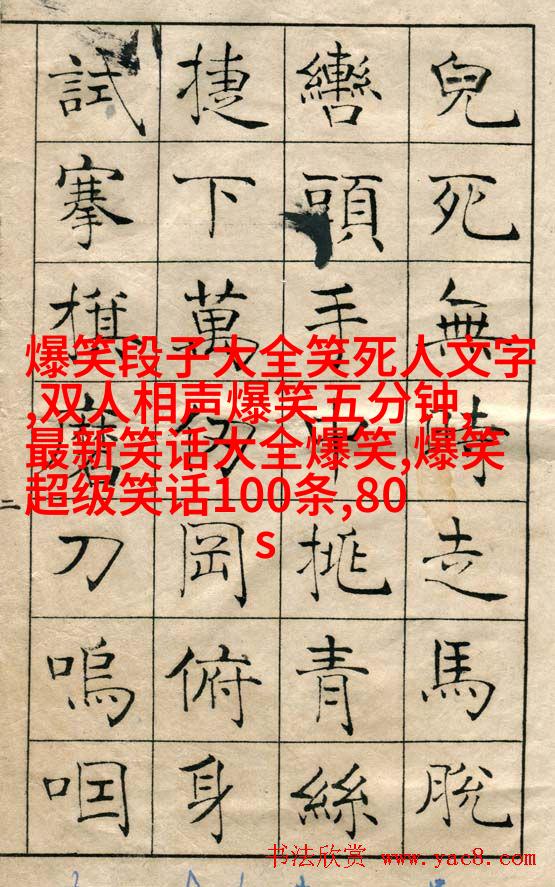 兒死無時走馬脫
轡頭手中挑青絲
捷下萬仞岡俯身
試搴旗磨刀嗚咽
二
爆笑段子大全笑死人文字
,双人相声爆笑五分钟,
最新笑话大全爆笑,爆笑
超级笑话100条,80
s
书法欣赏 www.yac8.com